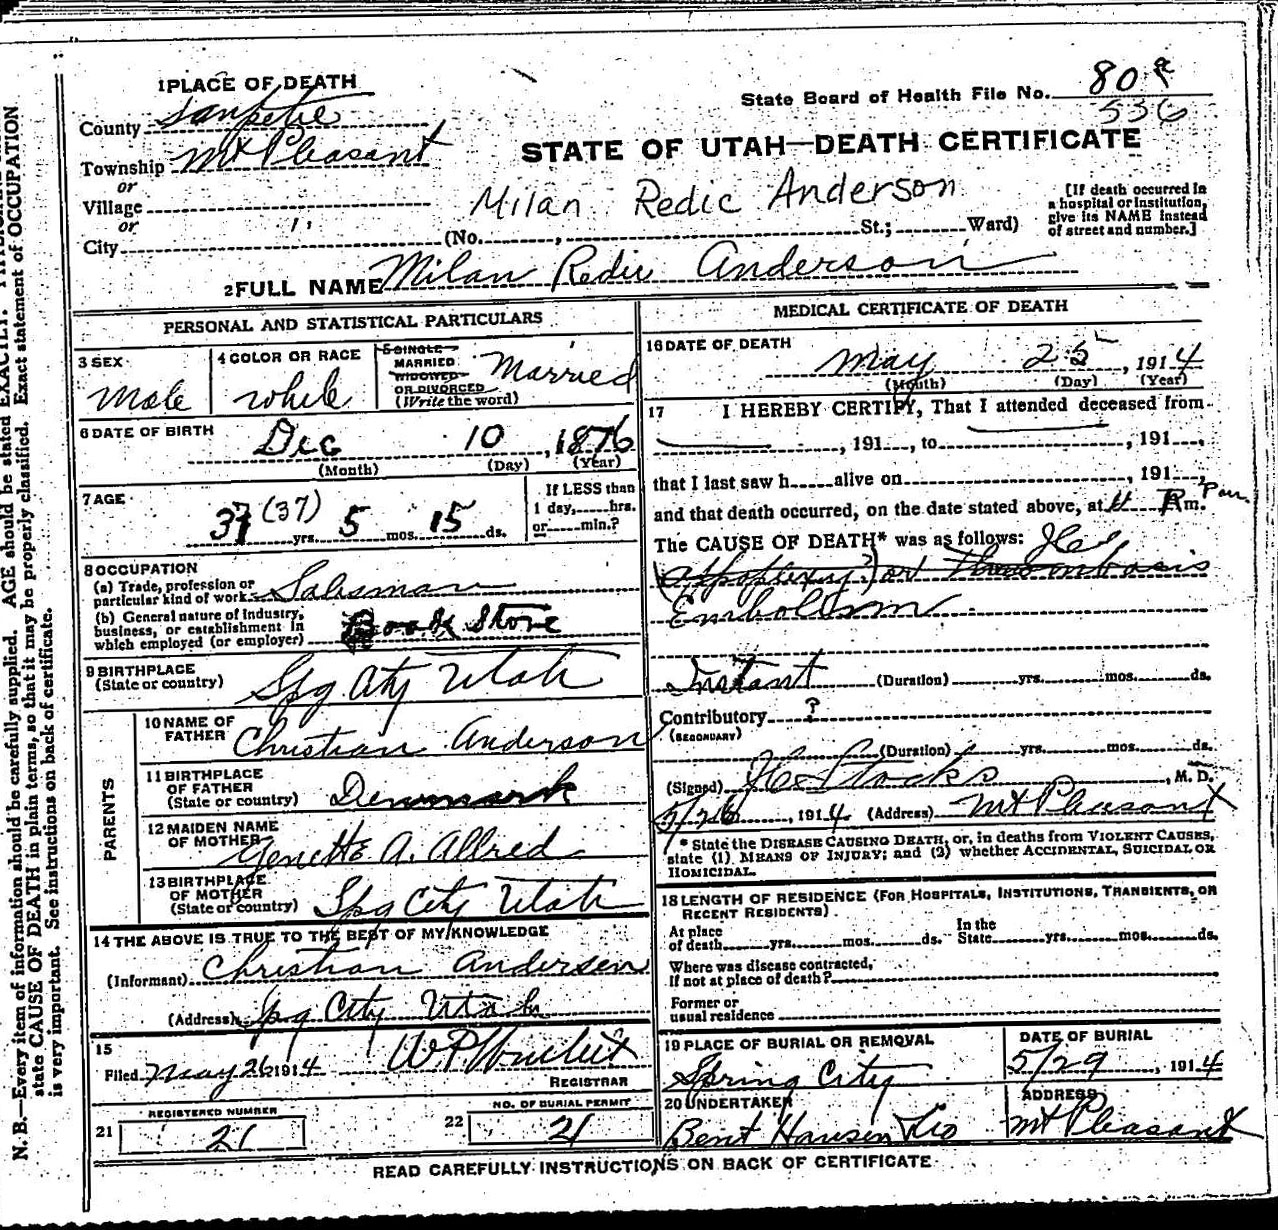 1 PLACE OF DEATH
County Sanpete
Township Mt Pleasant
or
Village
or
City
State Board of Health File No. 80
536
STATE OF UTAH—DEATH CERTIFICATE
Milan Redic Anderson
(No. , St.; Ward)
[If death occurred in
a hospital or institution,
give its NAME instead
of street and number.]
2 FULL NAME Milan Redic Anderson
PERSONAL AND STATISTICAL PARTICULARS
3 SEX
Male
4 COLOR OR RACE
white
5 SINGLE
MARRIED
WIDOWED
OR DIVORCED
(Write the word)
Married
6 DATE OF BIRTH
Dec 10, 1876
(Month) (Day) (Year)
7 AGE
37 (37) yrs. 5 mos. 15 ds.
If LESS than
1 day, hrs.
or min.?
8 OCCUPATION
(a) Trade, profession or
particular kind of work Salesman
(b) General nature of industry,
business, or establishment in
which employed (or employer) Book Store
9 BIRTHPLACE
(State or country) Spg City Utah
PARENTS
10 NAME OF
FATHER Christian Anderson
11 BIRTHPLACE
OF FATHER
(State or country) Denmark
12 MAIDEN NAME
OF MOTHER A. Allred
13 BIRTHPLACE
OF MOTHER
(State or country) Spg City Utah
14 THE ABOVE IS TRUE TO THE BEST OF MY KNOWLEDGE
(Informant) Christian Andersen
(Address) Spg City Utah
15
Filed May 26 1914 W P
REGISTRAR
21
REGISTERED NUMBER
21
22
NO. OF BURIAL PERMIT
21
MEDICAL CERTIFICATE OF DEATH
16 DATE OF DEATH
May 25, 1914
(Month) (Day) (Year)
17 I HEREBY CERTIFY, That I attended deceased from
, 191 , to , 191 ,
that I last saw h alive on , 191 ,
and that death occurred, on the date stated above, at m.
The CAUSE OF DEATH* was as follows:
(Appoplexy?) or Thrombosis
Embolism
Instant (Duration) yrs. mos. ds.
Contributory ?
(SECONDARY)
(Duration) yrs. mos. ds.
(Signed) , M. D.
5/26, 1914 (Address) Mt Pleasant
* State the DISEASE CAUSING DEATH, or, in deaths from VIOLENT CAUSES,
state (1) MEANS OF INJURY; and (2) whether ACCIDENTAL, SUICIDAL OR
HOMICIDAL.
18 LENGTH OF RESIDENCE (FOR HOSPITALS, INSTITUTIONS, TRANSIENTS, OR
RECENT RESIDENTS).
At place
of death yrs. mos. ds.
In the
State yrs. mos. ds.
Where was disease contracted,
If not at place of death?
Former or
usual residence
19 PLACE OF BURIAL OR REMOVAL
Spring City
DATE OF BURIAL
5/29, 1914
20 UNDERTAKER
Bent Hansen
ADDRESS
Mt Pleasant
READ CAREFULLY INSTRUCTIONS ON BACK OF CERTIFICATE
N. B.—Every item of information should be carefully supplied. AGE should be stated EXACTLY.
state CAUSE OF DEATH in plain terms, so that it may be properly classified. Exact statement of OCCUPATION
is very important. See instructions on back of certificate.